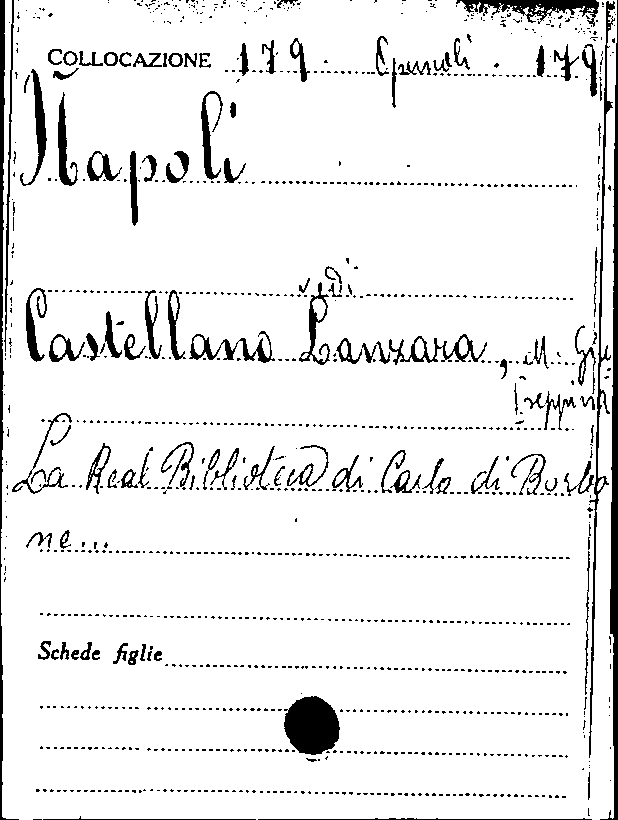 COLLOCAZIONE 179. Opuscoli. 179
Napoli
vedi
Castellano Lanzara, M. Giu
seppina
La Real Biblioteca di Carlo di Borbo
ne...
Schede figlie